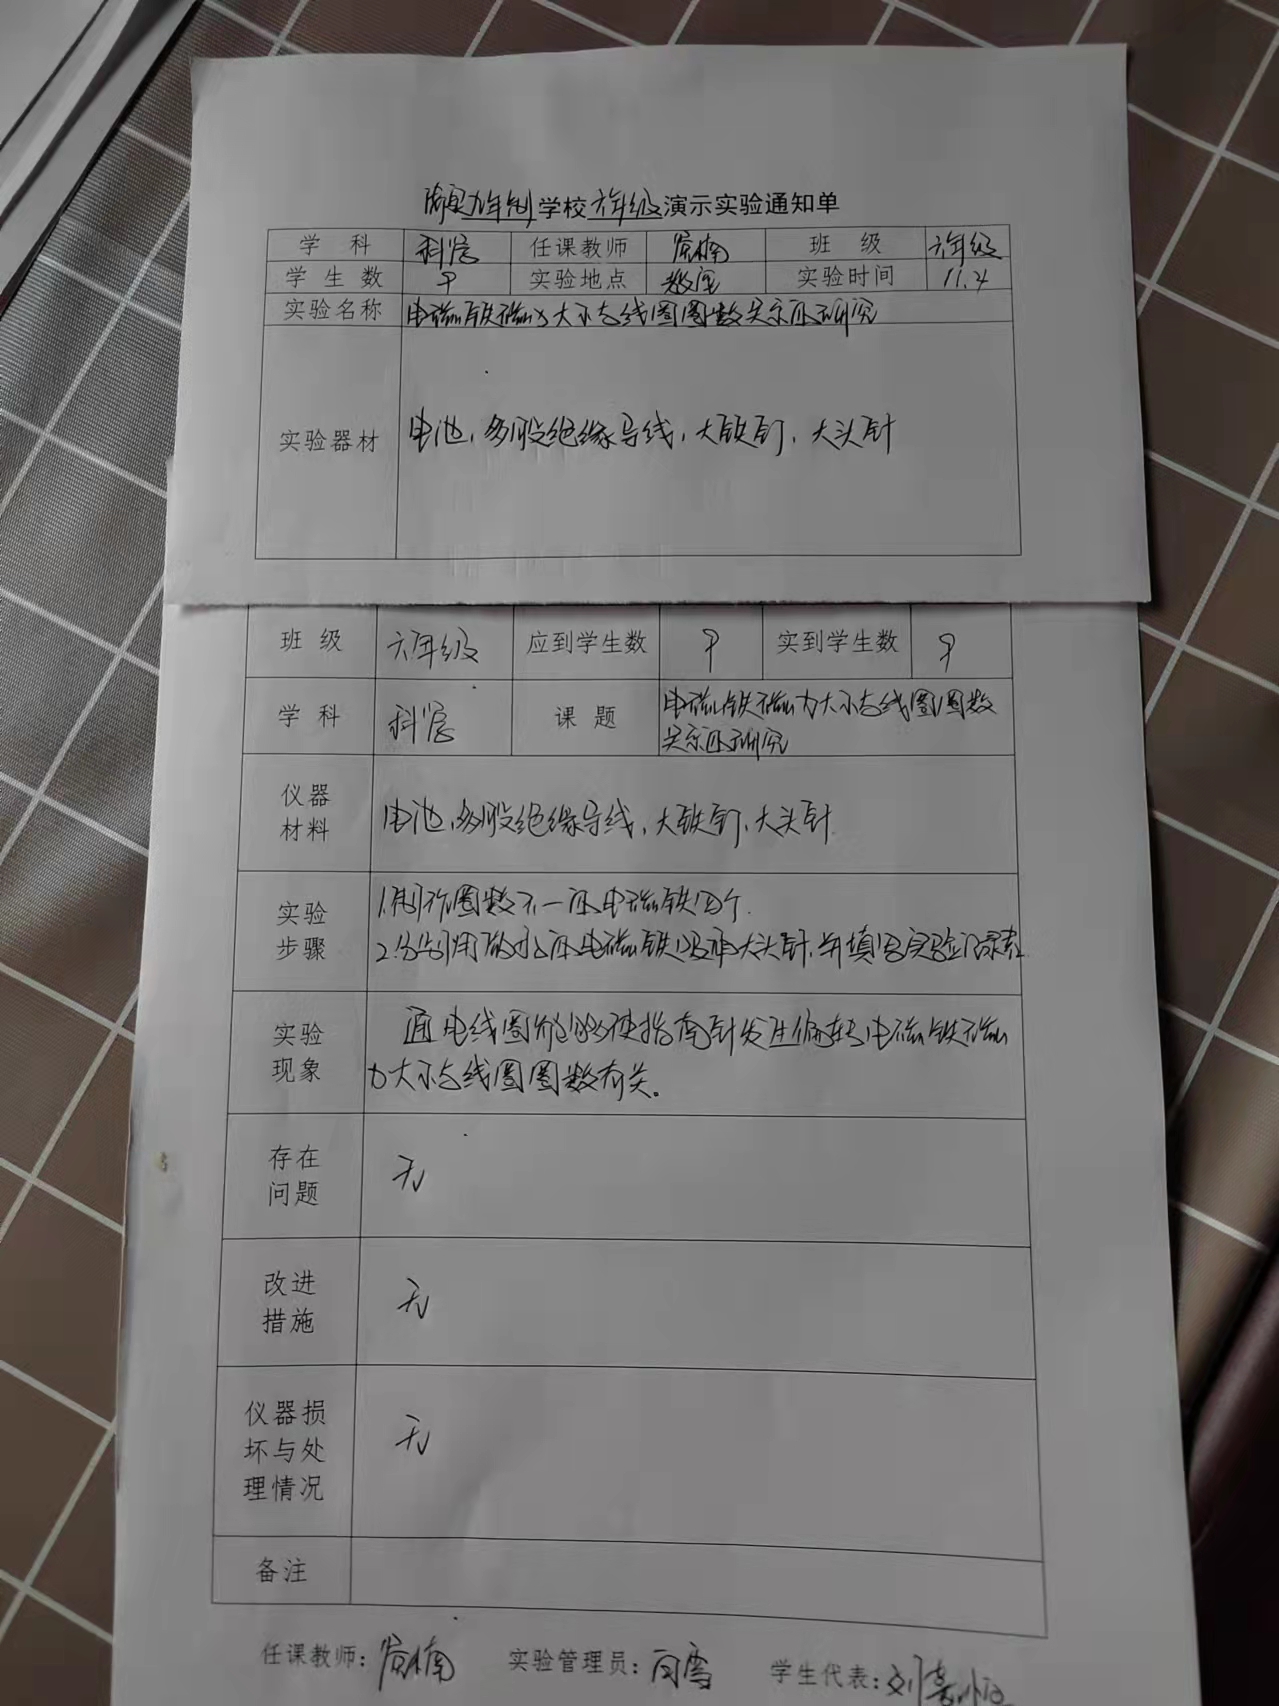 九年制学校六年级演示实验通知单
学 科 科学 任课教师 班 级 六年级
学 生 数 9 实验地点 教室 实验时间 11.4
实验名称 电磁铁磁力大小与线圈圈数关系的研究
实验器材 电池、多股绝缘导线、大铁钉、大头针
班 级 六年级 应到学生数 9 实到学生数 9
学 科 科学 课 题 电磁铁磁力大小与线圈圈数
关系的研究
仪器
材料
电池、多股绝缘导线、大铁钉、大头针
实验
步骤
1.制作圈数不一的电磁铁四个.
2.分别用做好的电磁铁吸串大头针,并填写实验记录表
实验
现象
通电线圈能够使指南针发生偏转,电磁铁磁
力大小与线圈圈数有关。
存在
问题
无
改进
措施
无
仪器损
坏与处
理情况
无
备注
任课教师: 实验管理员: 学生代表:刘